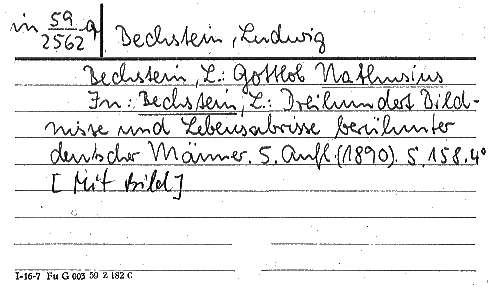 in 59/2562 a Bechstein, Ludwig
Bechstein, L.: Gottlob Nathusius
In: Bechstein, L.: Dreihundert Bild-
nisse und Lebensabrisse berühmter
deutscher Männer. 5. Aufl. (1890). S. 158. 4°
[Mit Bild]
I-16-7 Fu G 003 59 Z 182 C